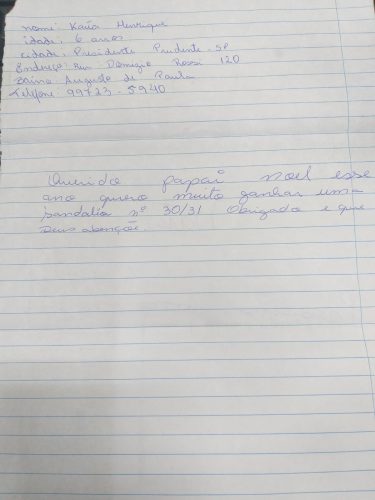 nome: Kauã Henrique
idade: 6 anos
cidade: Presidente Prudente-SP
Endereço: Rua: Domingio Rossi 120
Bairro: Augusto de Paula
Telefone: 99723-5940
Querido papai noel esse
ano quero muito ganhar uma
sandalia nº 30/31 Obrigado e que
Deus abençõe.